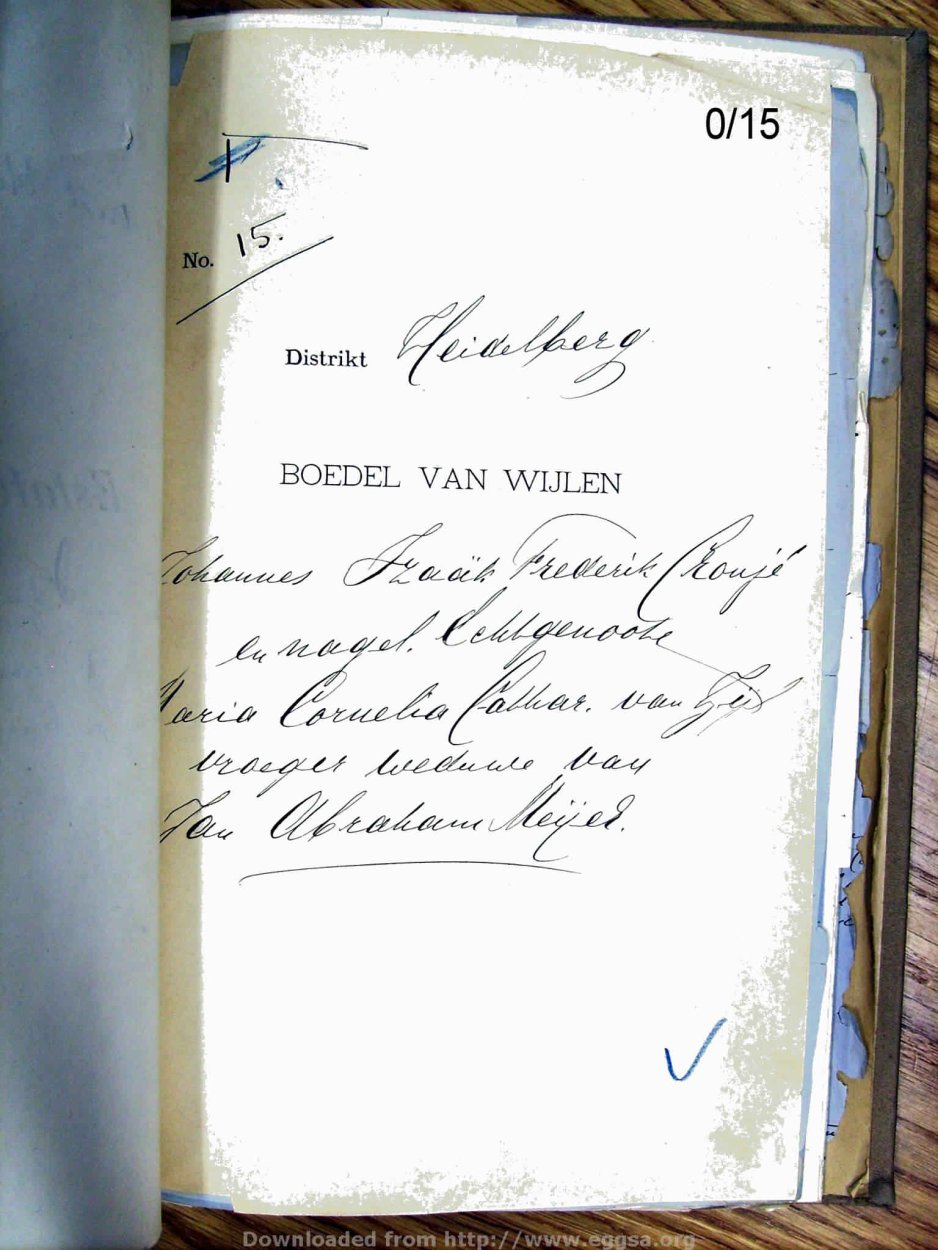 0/15
No. 15.
Distrikt Heidelberg
BOEDEL VAN WIJLEN
Johannes Izaäk Frederik Cronjé
en nagel. Echtgenoote
Maria Cornelia Cathar. van Zijl
vroeger weduwe van
Jan Abraham Meijer.
Downloaded from http://www.eggsa.org